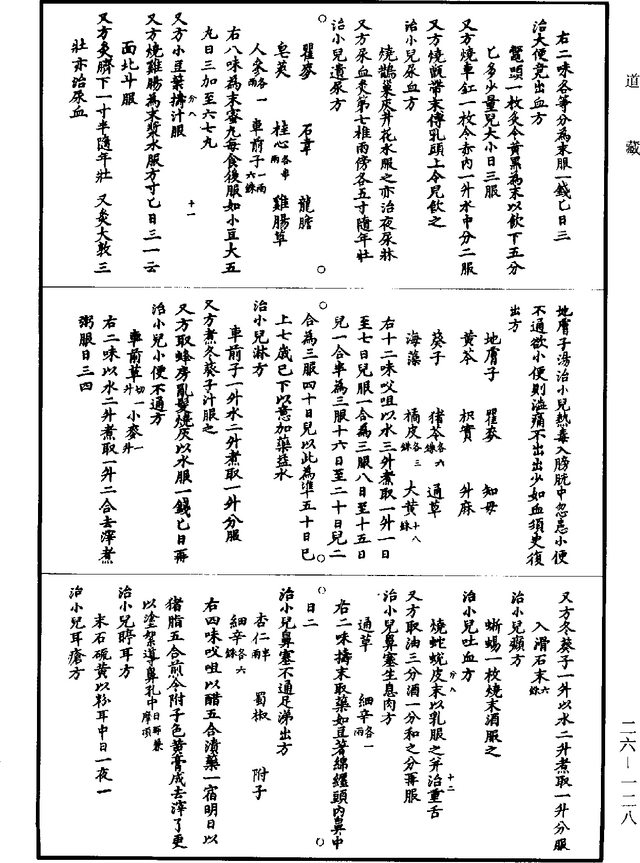 道藏
右二味各等分為末服一錢匕日三
治大便竟出血方
鼈頭一枚炙令黄黑為末以飲下五分
匕多少量兒大小日三服
又方燒車釭一枚令赤内一升水中分二服
又方燒甑帶末傅乳頭上令兒飲之
治小兒尿血方
燒鵲巢灰井花水服之亦治夜尿牀
又方尿血灸第七椎兩傍各五寸隨年壯
治小兒遺尿方
瞿麥 石韋 龍膽
皂莢 桂心各半兩 雞腸草
人參各一兩 車前子一兩六銖
右八味為末蜜丸每食後服如小豆大五
丸日三加至六七丸
又方小豆葉擣汁服
又方燒雞腸為末漿水服方寸匕日三一云
面北斗服
又方灸臍下一寸半隨年壯 又灸大敦三
壯亦治尿血
地膚子湯治小兒熱毒入膀胱中忽患小便
不通欲小便則澁痛不出出少如血須臾復
出方
地膚子 瞿麥 知母
黄芩 枳實 升麻
葵子 猪苓各六銖 通草
海藻 橘皮各三銖 大黄十八銖
右十二味㕮咀以水三升煮取一升一日
至七日兒服一合為三服八日至十五日
兒一合半為三服十六日至二十日兒二
合為三服四十日兒以此為準五十日已
上七歲已下以意加藥益水
治小兒淋方
車前子一升水二升煮取一升分服
又方煮冬葵子汁服之
又方取蜂房亂髮燒灰以水服一錢匕日再
治小兒小便不通方
車前草切一升 小麥一升
右二味以水二升煮取一升二合去滓煮
粥服日三四
又方冬葵子一升以水二升煮取一升分服
入滑石末六銖
治小兒㿗方
蜥蜴一枚燒末酒服之
治小兒吐血方
燒蛇蛻皮末以乳服之并治重舌
又方取油三分酒一分和之分再服
治小兒鼻塞生息肉方
通草 細辛各一兩
右二味擣末取藥如豆著綿纏頭内鼻中
日二
治小兒鼻塞不通足涕出方
杏仁半兩 蜀椒 附子
細辛各六銖
右四味㕮咀以醋五合漬藥一宿明日以
猪脂五合煎令附子色黄膏成去滓了更
以塗絮導鼻孔中日再兼摩頂
治小兒聤耳方
末石硫黄以粉耳中日一夜一
治小兒耳瘡方
二六—一二八